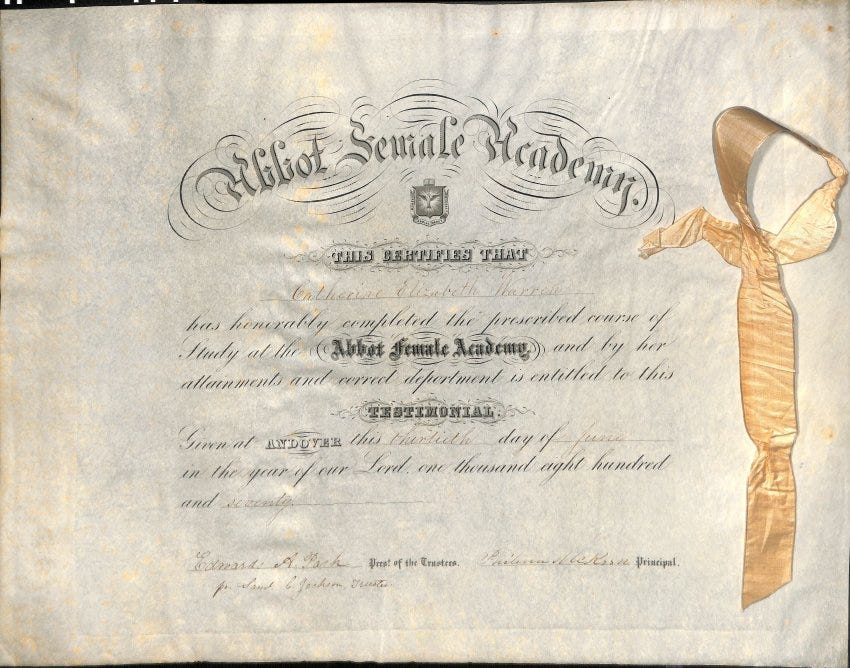 Abbot Female Academy.
THIS CERTIFIES THAT
Catherine Elizabeth Warren
has honorably completed the prescribed course of
Study at the Abbot Female Academy and by her
attainments and correct deportment is entitled to this
TESTIMONIAL.
Given at ANDOVER this thirtieth day of June
in the year of our Lord, one thousand eight hundred
and seventy.
Edwards A. Park Prest. of the Trustees. Philena McKeen Principal.
pr. Saml C. Jackson, Trustee